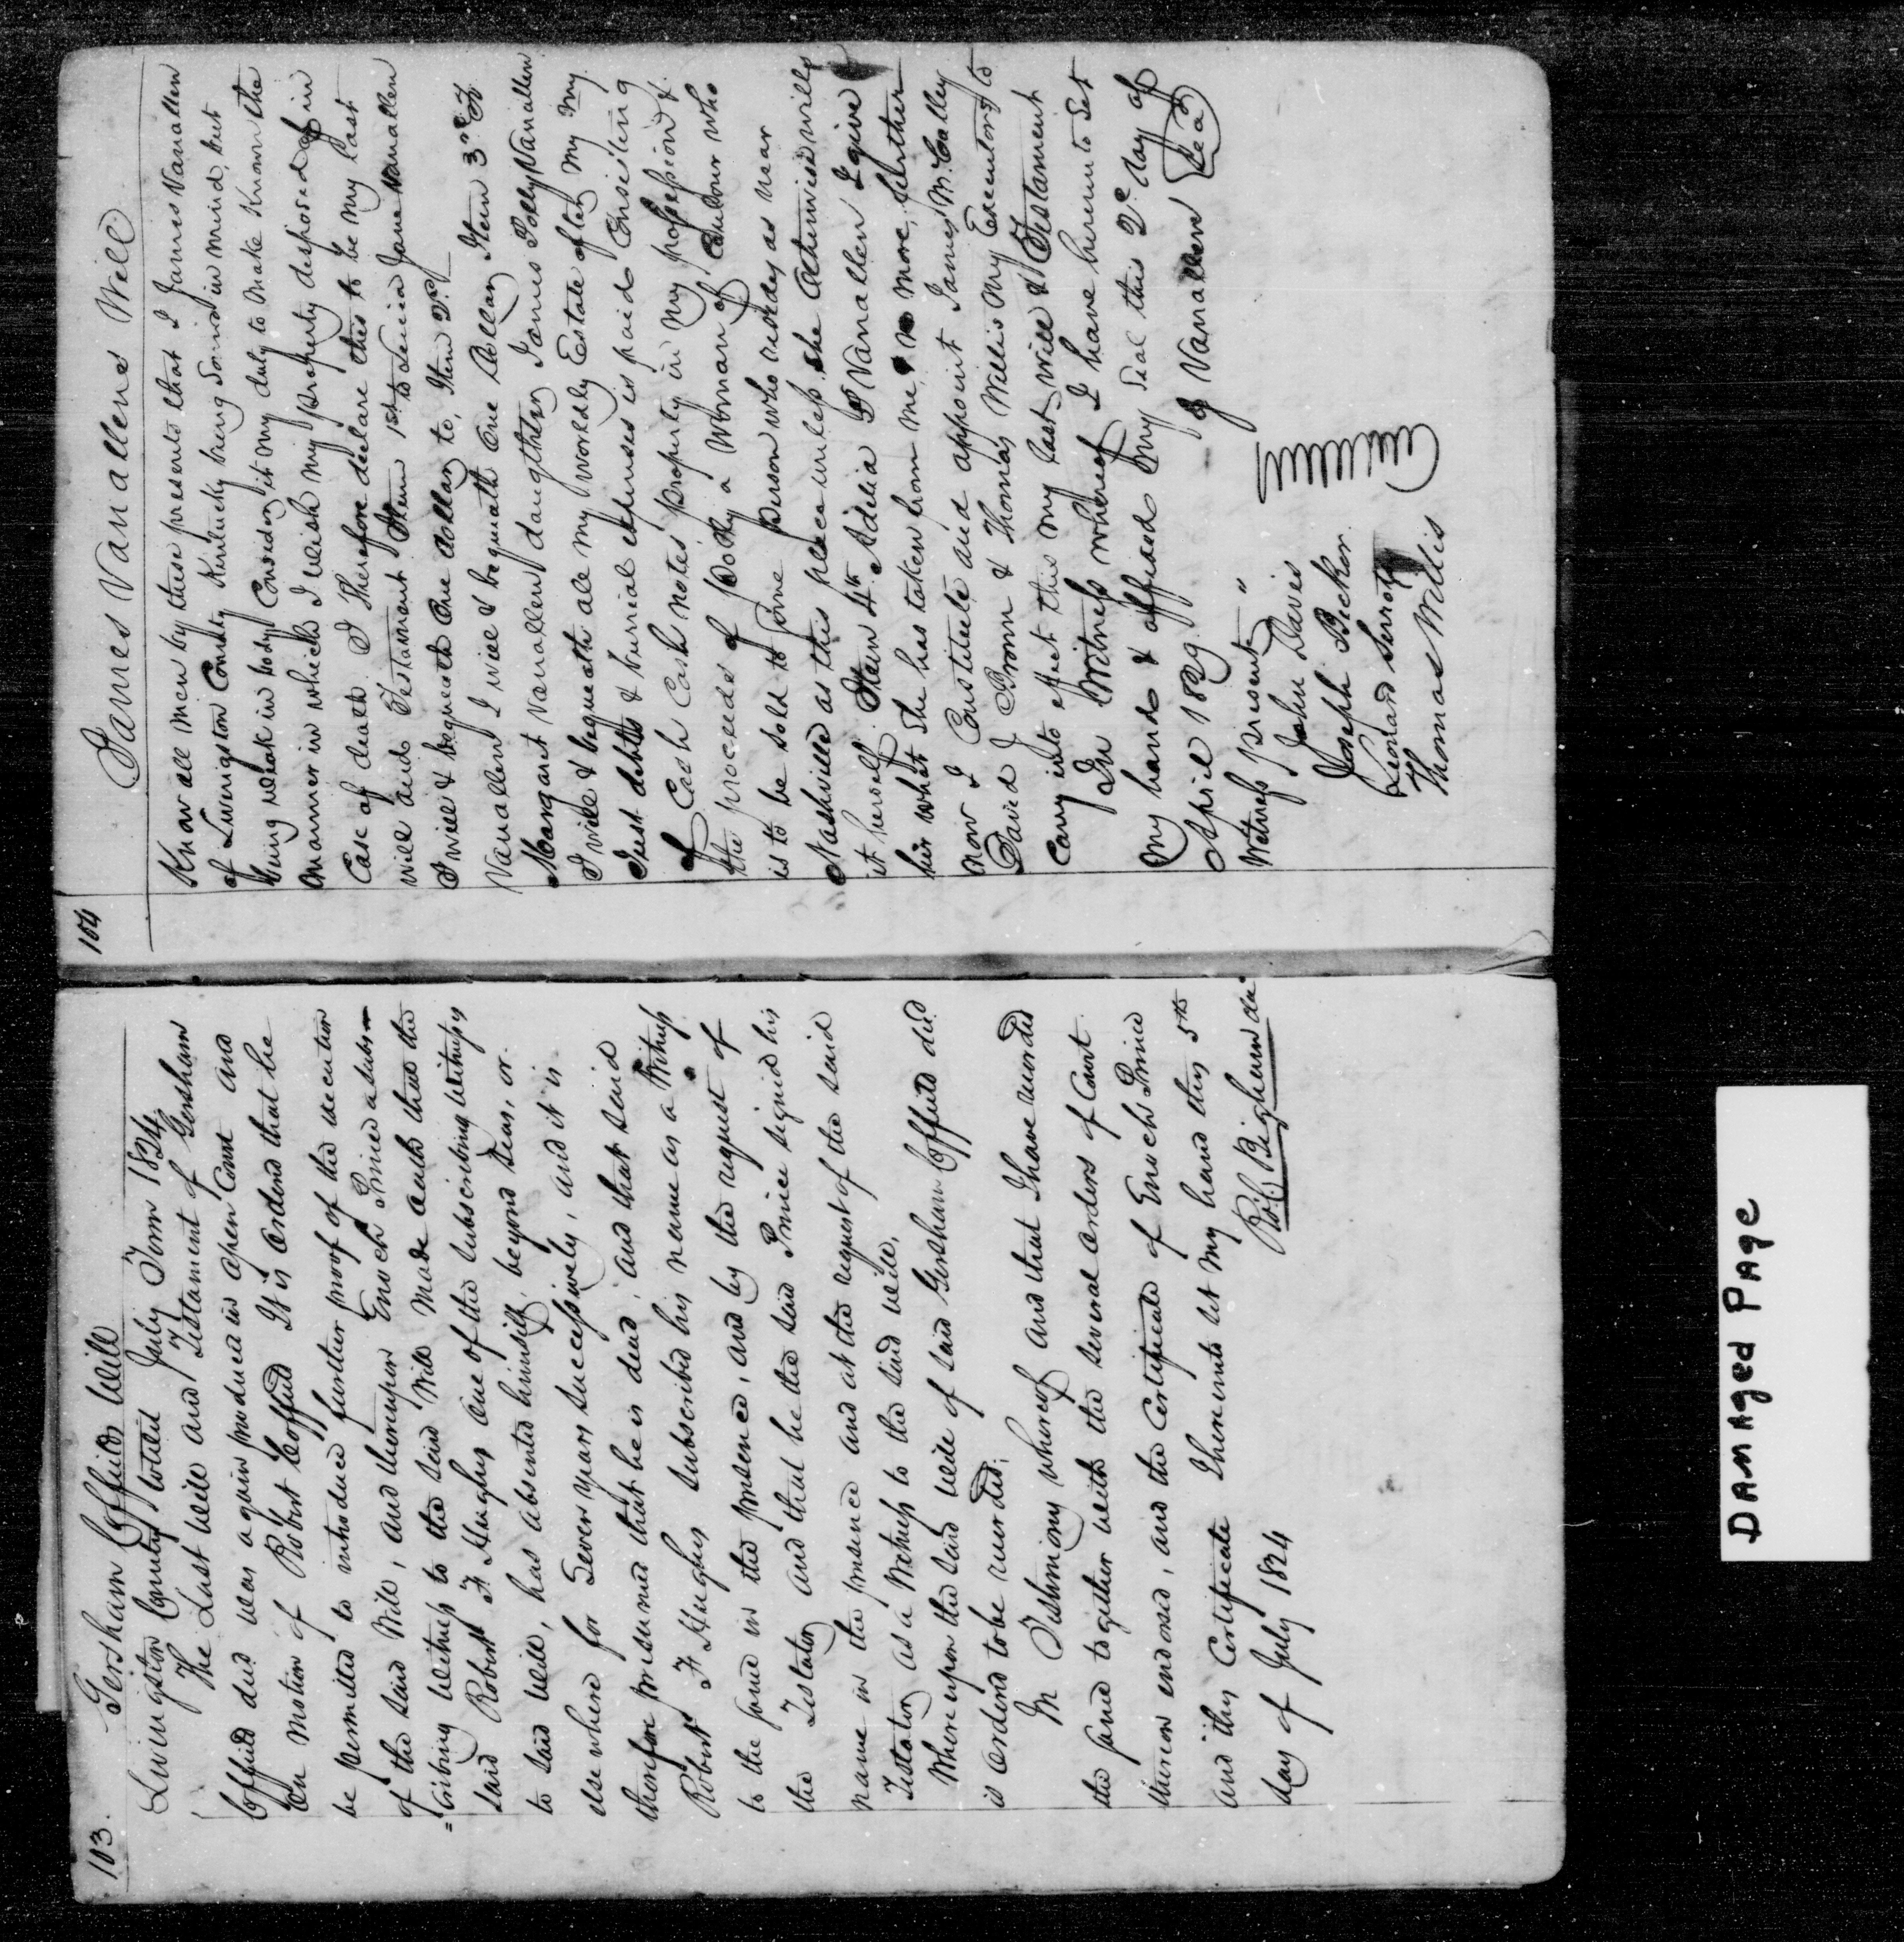 103.
Gersham Coffields Will
Livingston County towit July Term 1824,
The Last will and Testament of Gersham
Coffield decd was again produced in open Court and
On motion of Robert Coffield It is ordered that he
be permitted to introduce further proof of the execution
of the said Will, and thereupon Enoch Prince a subs-
=cribing witness to the said Will made oath that the
said Robert F Hughes one of the subscribing witnesses
to said will, has absented himself, beyond seas, or
else where for Seven years successively, and it is
therefore presumed that he is dead, and that said
Robert F Hughes subscribed his name as a Witness
to the same in the presence, and by the request of
the Testator and that he the said Prince signed his
name in the presence and at the request of the said
Testator as a Witness to the said will,
Where upon the said will of said Gersham Coffield decd
is ordered to be recorded;
In Testimony whereof and that I have recorded
the same together with the several orders of Court
thereon endorsed, and the Certificate of Enoch Prince
and this Certificate I hereunto set my hand this 5th
day of July 1824
104
James Vanallens Will
Know all men by these presents that I James Vanallen
of Livingston County Kentucky being Sound in mind, but
being weak in body, Considering it my duty to make Known the
manner in which I wish my property disposed of in
Case of death I Therefore declare this to be my last
will and Testament Item 1st to Jane Vanallen
I will & bequeath One dollar, to, Item 2d
Vanallen I will & bequeath One dollar, Item 3rd To
Margaret Vanallen daughter James Polly Vanallen
I will & bequeath all my worldly Estate after my my
Just debtts & burrial expenses is paid Consisting
of Cash Cash notes property in my possession &
the proceeds of a Woman of Colour who
is to be sold to some Person who resides as near
Nashville as this place unless she otherwise wills
it herself. Item 4th Adelia P Vanallen I give
her what She has taken from me, & no more, further
now I Constitute and appoint James M. Calley
David J Brown & Thomas Willis my Executors to
Carry into effect this my last will & Testament
In Witness whereof I have hereunto Set
my hand & affixed my Seal this 2d day of
April 1829. J Vanallen Seal
Witness Present "
John Davis
Joseph Becker
Leonard
Thomas Willis
DAMAged PAge